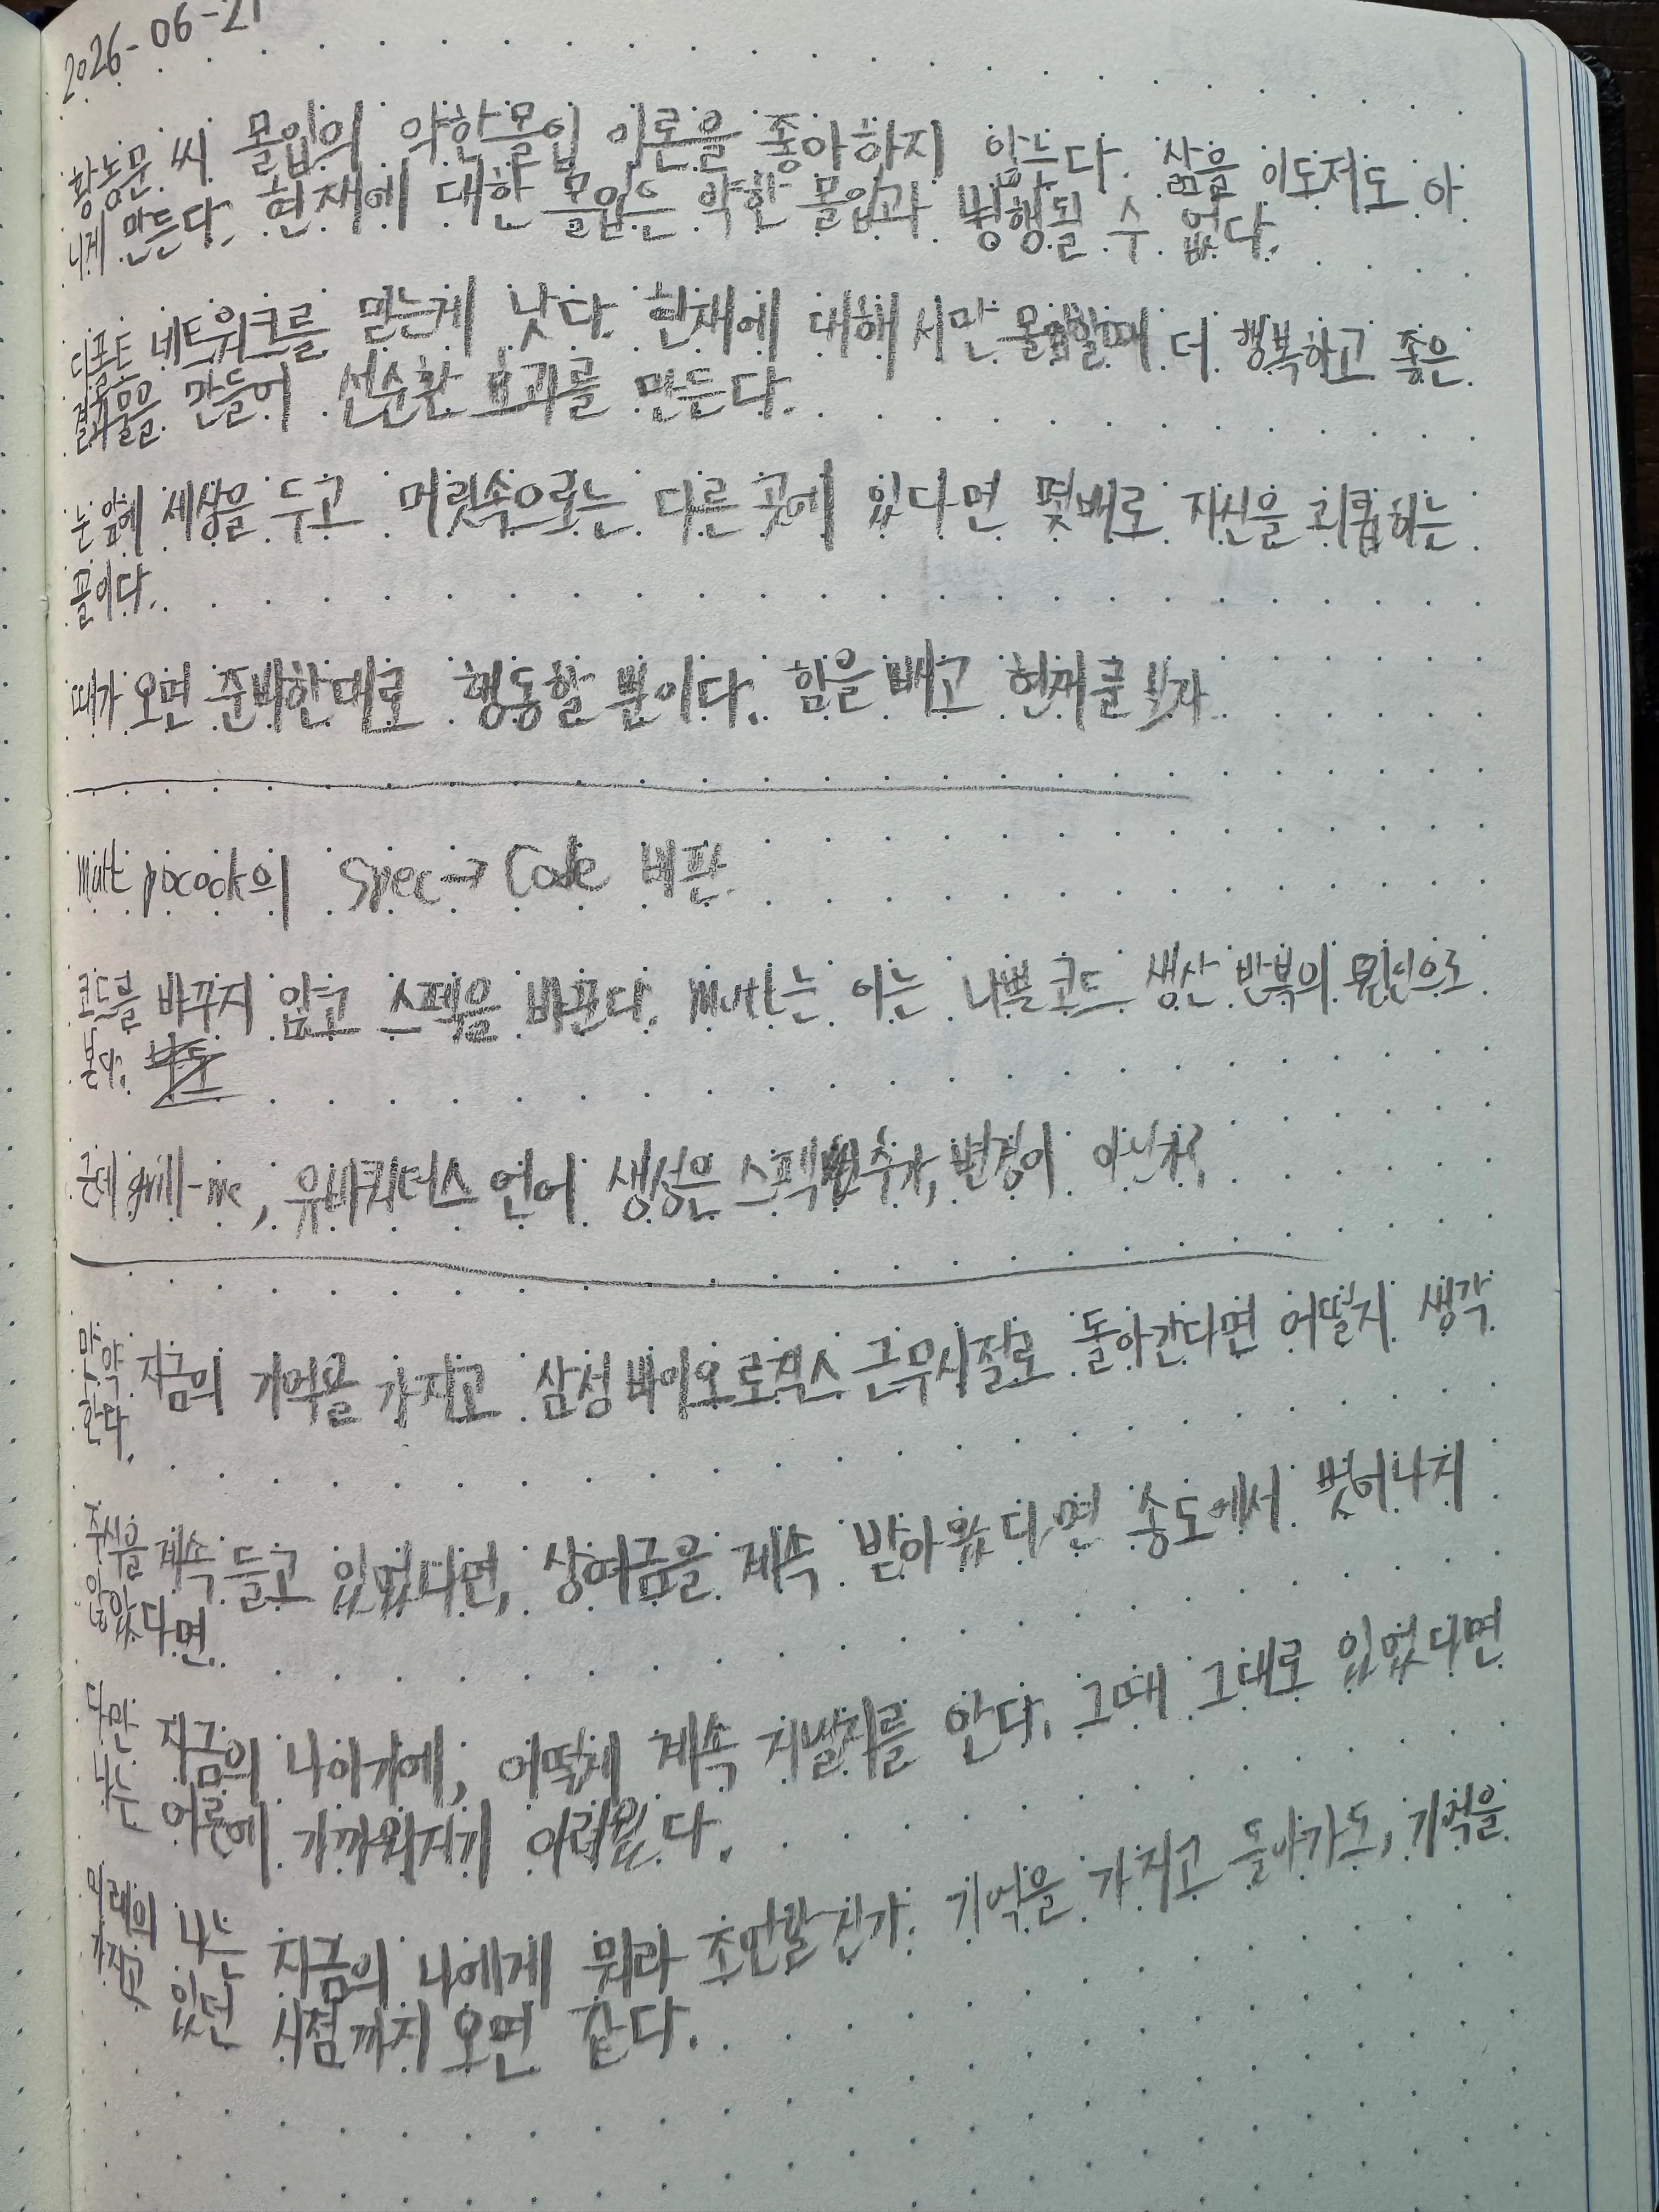 2026-06-21
황농문 씨 몰입의 약한몰입 이론을 좋아하지 않는다. 삶을 이도저도 아
니게 만든다. 현재에 대한 몰입은 약한 몰입과 병행될 수 없다.
디폴트 네트워크를 믿는게 낫다. 현재에 대해서만 몰입할때 더 행복하고 좋은
결과물을 만들어 선순환 효과를 만든다.
눈 앞에 세상을 두고 머릿속으로는 다른 곳에 있다면 몇배로 자신을 괴롭히는
꼴이다.
때가 오면 준비한대로 행동할 뿐이다. 힘을 빼고 현재를 보자
Matt pocock의 Spec → Code 비판
코드를 바꾸지 않고 스펙을 바꾼다. Matt는 이는 나쁜 코드 생산 반복의 원인으로
본다.
근데 grill-me, 유비쿼터스 언어 생성은 스펙 추가, 변경이 아닌가?
만약 지금의 기억을 가지고 삼성바이오로직스 근무시절로 돌아간다면 어떨지 생각
한다.
주식을 계속 들고 있었다면, 상여금을 계속 받아왔다면 송도에서 벗어나지
않았다면.
다만 지금의 나이기에, 어떻게 계속 지낼지를 안다. 그때 그대로 있었다면
나는 어른에 가까워지기 어려웠다.
미래의 나는 지금의 나에게 뭐라 조언할 건가. 기억을 가지고 돌아가도, 기억을
가지고 있던 시점까지 오면 같다.